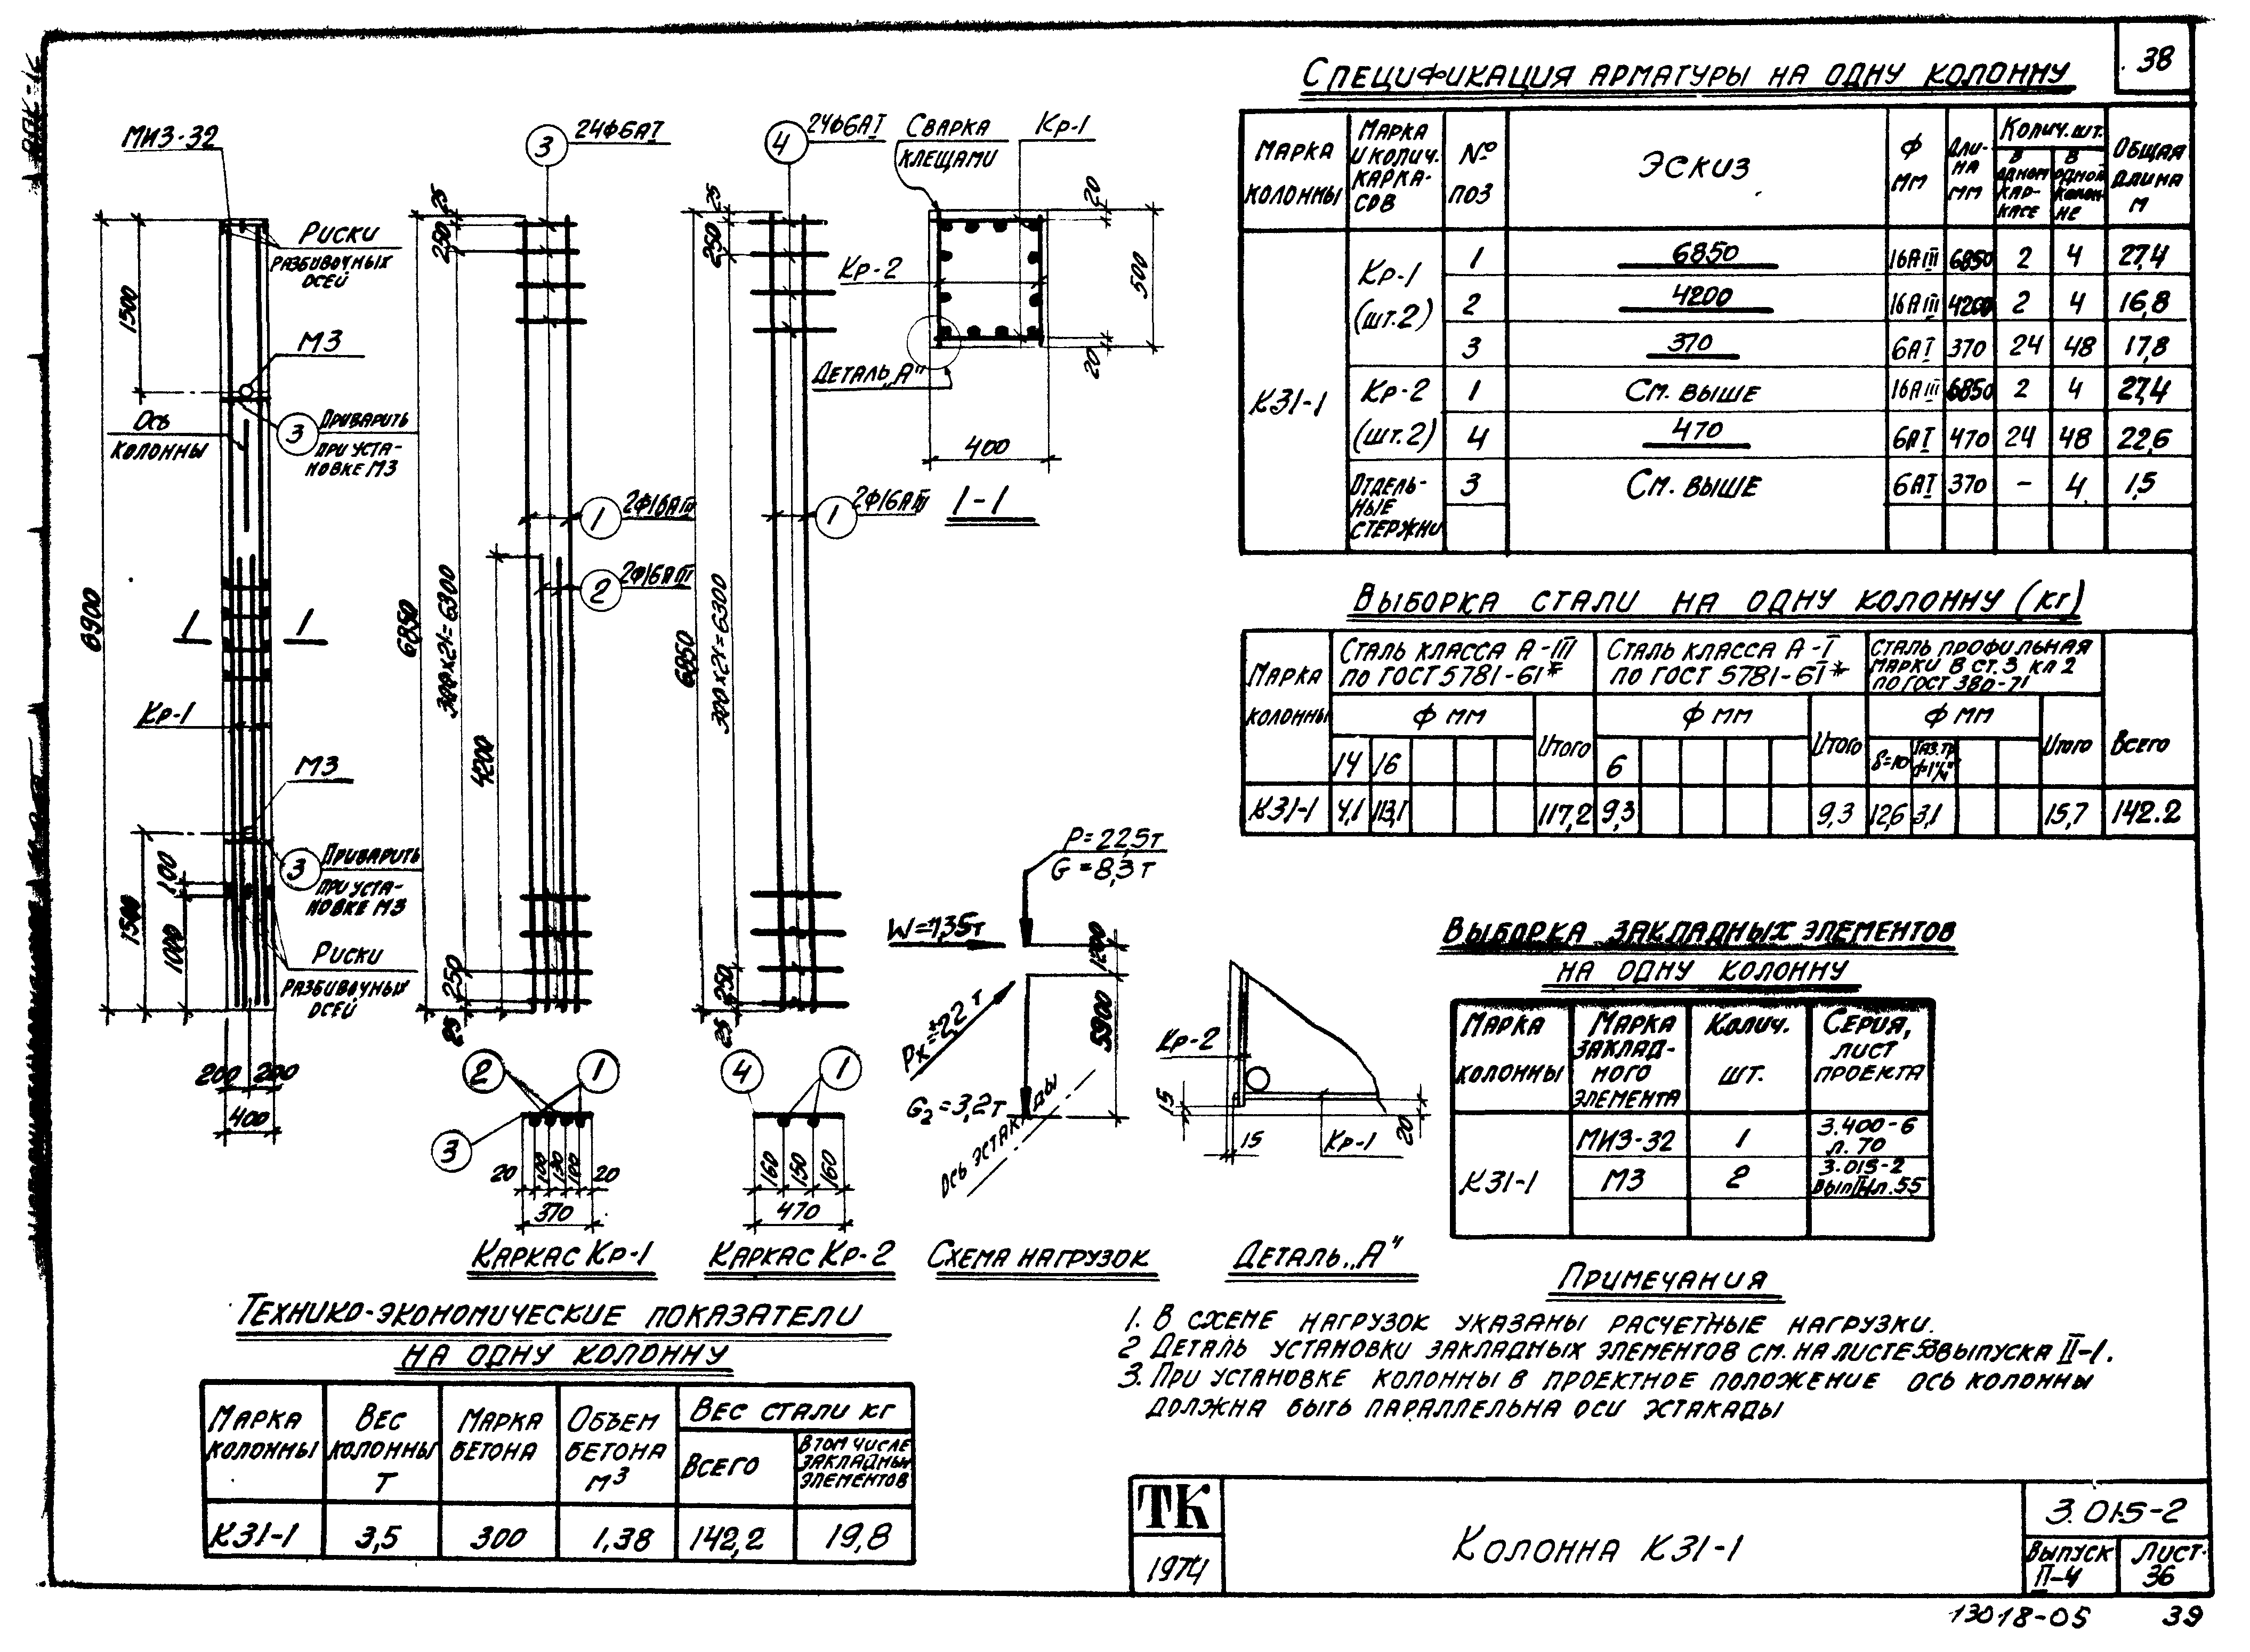 38
Спецификация арматуры на одну колонну
Марка колонны
Марка и колич. каркасов
№ поз
Эскиз
Ф мм
Длина мм
Колич. шт.
в одном каркасе
в одной колонне
Общая длина м
К31-1
Кр-1 (шт.2)
1 6850 16АIII 6850 2 4 27,4
2 4200 16АIII 4200 2 4 16,8
3 370 6АI 370 24 48 17,8
Кр-2 (шт.2)
1 См. выше 16АIII 6850 2 4 27,4
4 470 6АI 470 24 48 22,6
Отдельные стержни
3 См. выше 6АI 370 - 4 1,5
Выборка стали на одну колонну (кг)
Марка колонны
Сталь класса А-III
по ГОСТ 5781-61*
Сталь класса А-I
по ГОСТ 5781-61*
Сталь профильная
марки В ст.3 кл 2
по ГОСТ 380-71
Всего
Ф мм
Итого
Ф мм
Итого
Ф мм
Итого
14 16
6
δ=10
Газ. тр. d=1¼"
К31-1 4,1 113,1 117,2 9,3 9,3 12,6 3,1 15,7 142.2
Выборка закладных элементов
на одну колонну
Марка колонны
Марка закладного элемента
Колич. шт.
Серия, лист проекта
К31-1
МИ3-32 1 3.400-6 л. 70
М3 2 3.015-2 Вып II-1 л. 55
МИ3-32
Риски
разбивочных
осей
1500
М3
3
Приварить
при уста-
новке М3
Ось
колонны
6900
1 1
Кр-1
М3
3
Приварить
при уста-
новке М3
1500
100
1000
Риски
разбивочных
осей
200 200
400
3
24ф6АI
25
250
6850
300х21=6300
4200
1
2ф16АIII
2
2ф16АIII
250
25
2 1
3
20 100 130 100 20
370
Каркас Кр-1
4
24ф6АI
25
250
6850
300х21=6300
1
2ф16АIII
250
25
4 1
160 150 160
470
Каркас Кр-2
Сварка
клещами
Кр-1
20
Кр-2
500
20
Деталь „А"
400
1-1
Р=22,5т
G=8,3т
W=1,35т
1200
Рх=±2,2т
5900
G2=3,2т
Ось эстакады
Схема нагрузок
Кр-2
15
15
Кр-1
20
Деталь „А"
Примечания
1. В схеме нагрузок указаны расчетные нагрузки.
2 Деталь установки закладных элементов см. на листе 53 выпуска II-1.
3. При установке колонны в проектное положение ось колонны
должна быть параллельна оси эстакады
Технико-экономические показатели
на одну колонну
Марка колонны
Вес колонны Т
Марка бетона
Объем бетона м3
Вес стали кг
Всего
В том числе закладных элементов
К31-1 3,5 300 1,38 142,2 19,8
ТК
1974
Колонна К31-1
3.015-2
Выпуск II-4
Лист 36
13018-05 39